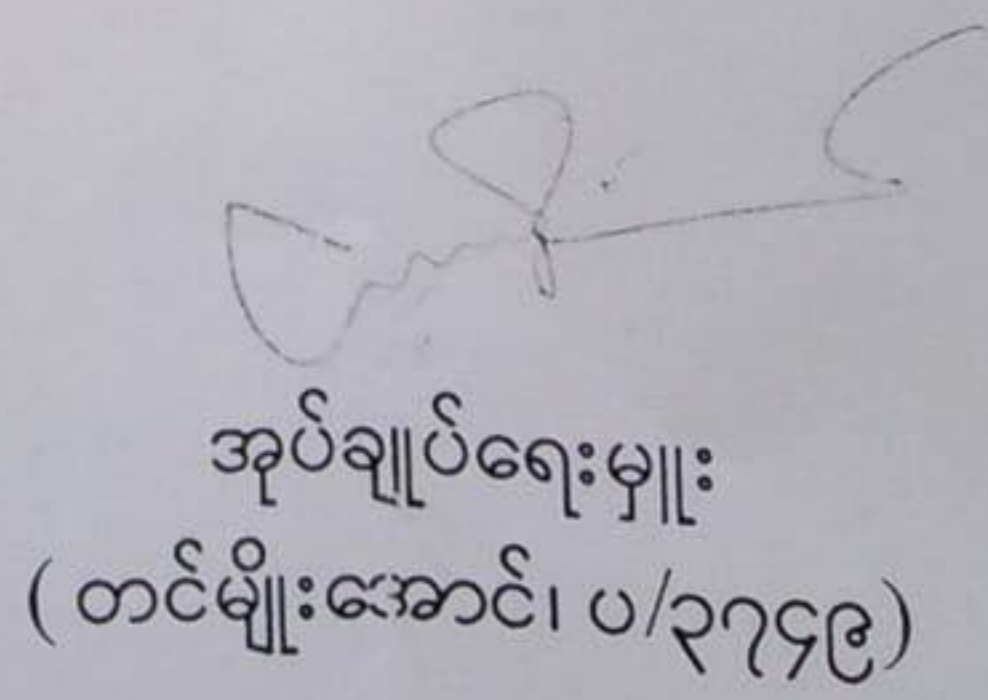 အုပ်ချုပ်ရေးမှူး
( တင်မျိုးအောင်၊ ပ/၃၇၄၉)